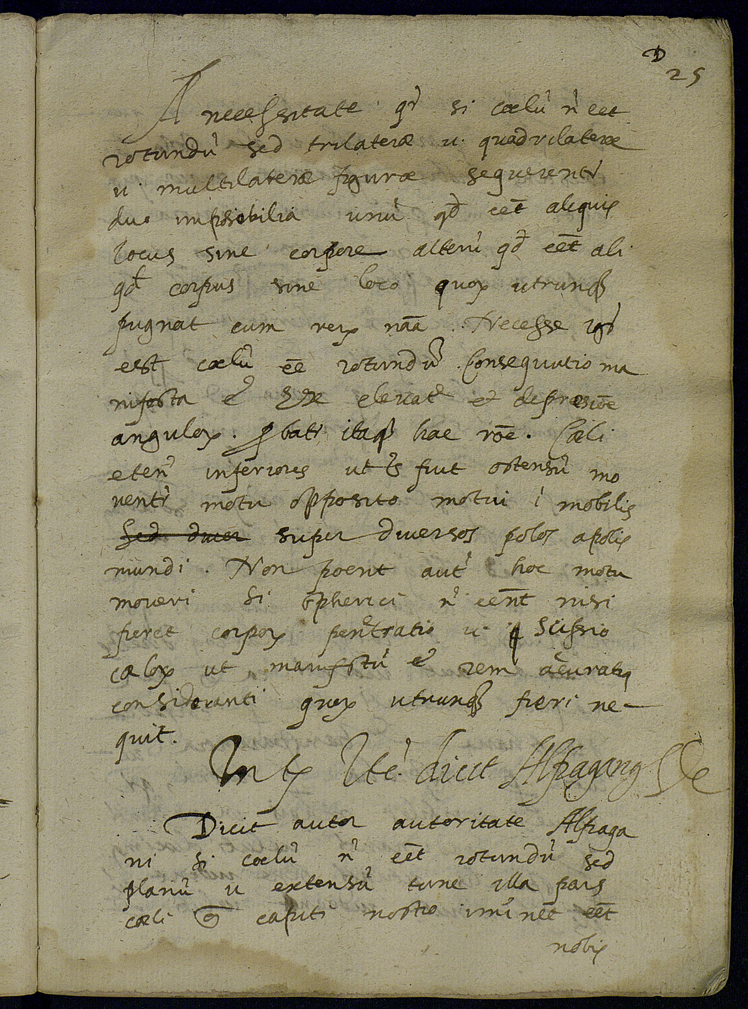 D
25
A necessitate qr̃ si cœlũ ñ eet
rotundũ sed trilateræ u quadrilateræ
u multilateræ figuræ sequerentr
duo impossibilia unũ qd̃ eet̃ aliquis
locus sine corpore alterũ qd̃ eet̃ ali
qd̃ corpus sine loco quoꝝ utrunqȝ
pugnat cum reꝝ nãa. Necesse igr
est cœlũ eẽ rotundũ. Consequutio ma
nifesta e elevat et depresiõe
anguloꝝ. ꝓbatr itaqȝ hac rõe. Cœli
etenĩ inferiores ut fuit ostensũ mo
ventr motu opposito motui i mobilis
Sed diver super diversos polos a polis
mundi. Non poent aut hoc motu
moveri si spherici ñ eent̃ nisi
fieret corpoꝝ penetratio u scissio
cœloꝝ ut manifestũ e rem accuratiꝰ
consideranti quoꝝ utrunqȝ fieri ne-
quit.
In tꝝ Itẽ dicit Alfraganꝰ &c
Dicit autor autoritate Alfraga
ni si cœlũ ñ eet̃ rotundũ sed
planũ u extensũ tunc illa pars
cœli capiti nostro iminet eet̃
nobis